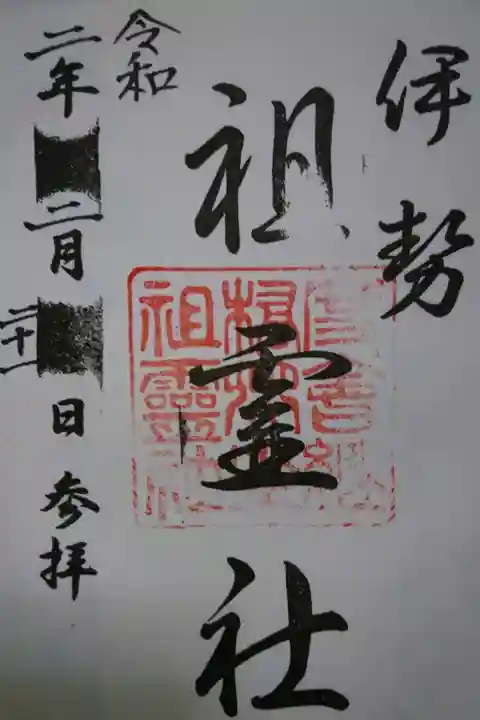 伊勢
祖霊社
令和
二年二月
二十一日参拝
祖霊社